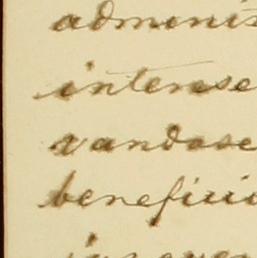 adminis
intense
vandose
benefici